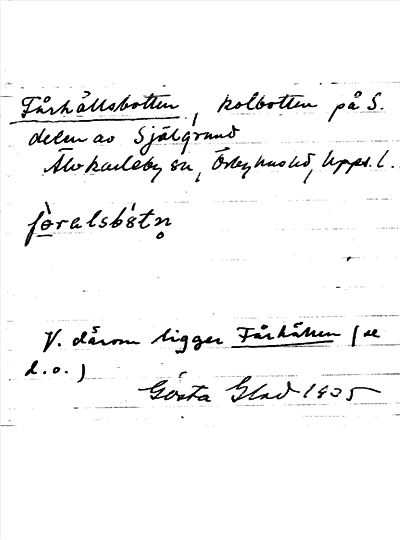 Fårhällsbotten, kolbotten på S.
delen av Själgrund
Älvkarleby sn, Örbyhus hd, Upps. l.
fòralsbótn̥
V. därom ligger Fårhällen (se
d.o.)
Gösta Glad 1905